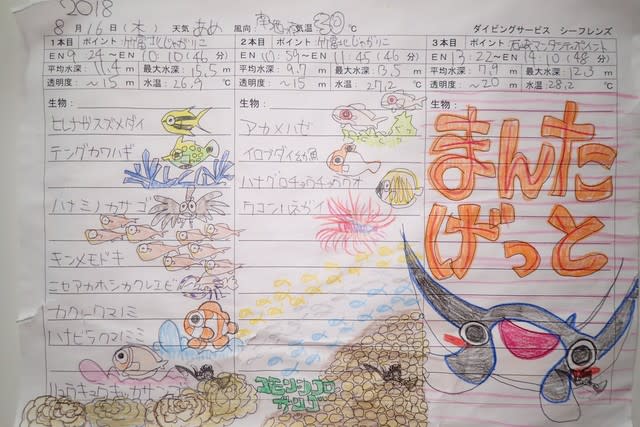 2018
8月16日(木) 天気 あめ 風向 南西 気温 30℃ ダイビングサービス シーフレンズ
1本目 ポイント 竹富北じゃがりこ
EN 9:24~ 10:10(46分)
平均水深: 11.4 m 最大水深: 15.5 m
透明度: ~15 m 水温: 26.9 ℃
生物:
ヒレナガスズメダイ
テングカワハギ
ハナミノカサゴ
キンメモドキ
ニセアカホシカクレエビ
カクレクマノミ
ハナビラクマノミ
2本目 ポイント 竹富北じゃがりこ
EN 10:59~ 11:45(46分)
平均水深: 9.7 m 最大水深: 13.5 m
透明度: ~15 m 水温: 27.2 ℃
生物:
アカメハゼ
イロブダイ幼魚
ハナグロチョウチョウウオ
ウコンハネガイ
コモンシコロ
サンゴ
3本目 ポイント 石崎マンタシティポイント
EN 13:22~ 14:10(48分)
平均水深: 7.9 m 最大水深: 12.3 m
透明度: ~20 m 水温: 28.2 ℃
生物:
まんた
げっと